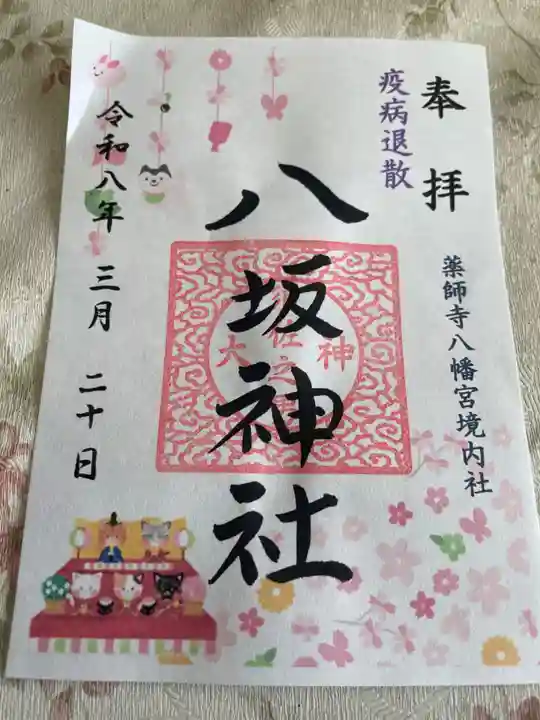 奉拝
疫病退散
薬師寺八幡宮境内社
八坂神社
令和八年 三月 二十日